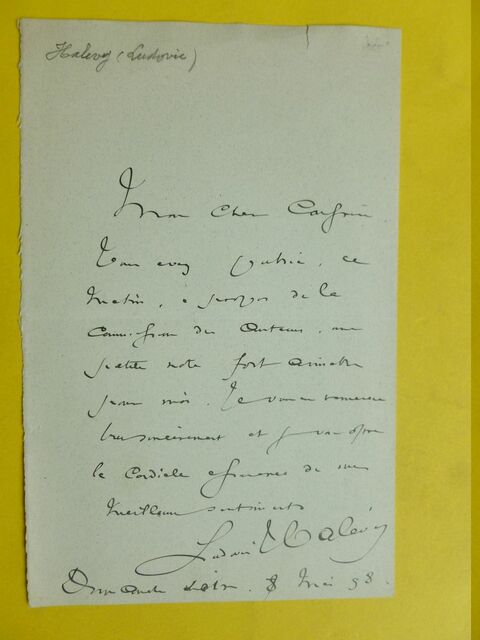 Halevy (Ludovic)
Mon cher
Vous avez publié, ce
matin, à propos de la
Commission des auteurs, une
petite note fort aimable
pour moi. Je vous en remercie
bien sincèrement et vous offre
la cordiale assurance de mes
meilleurs sentiments
Ludovic Halévy
Dimanche soir. 8 Mai 98.